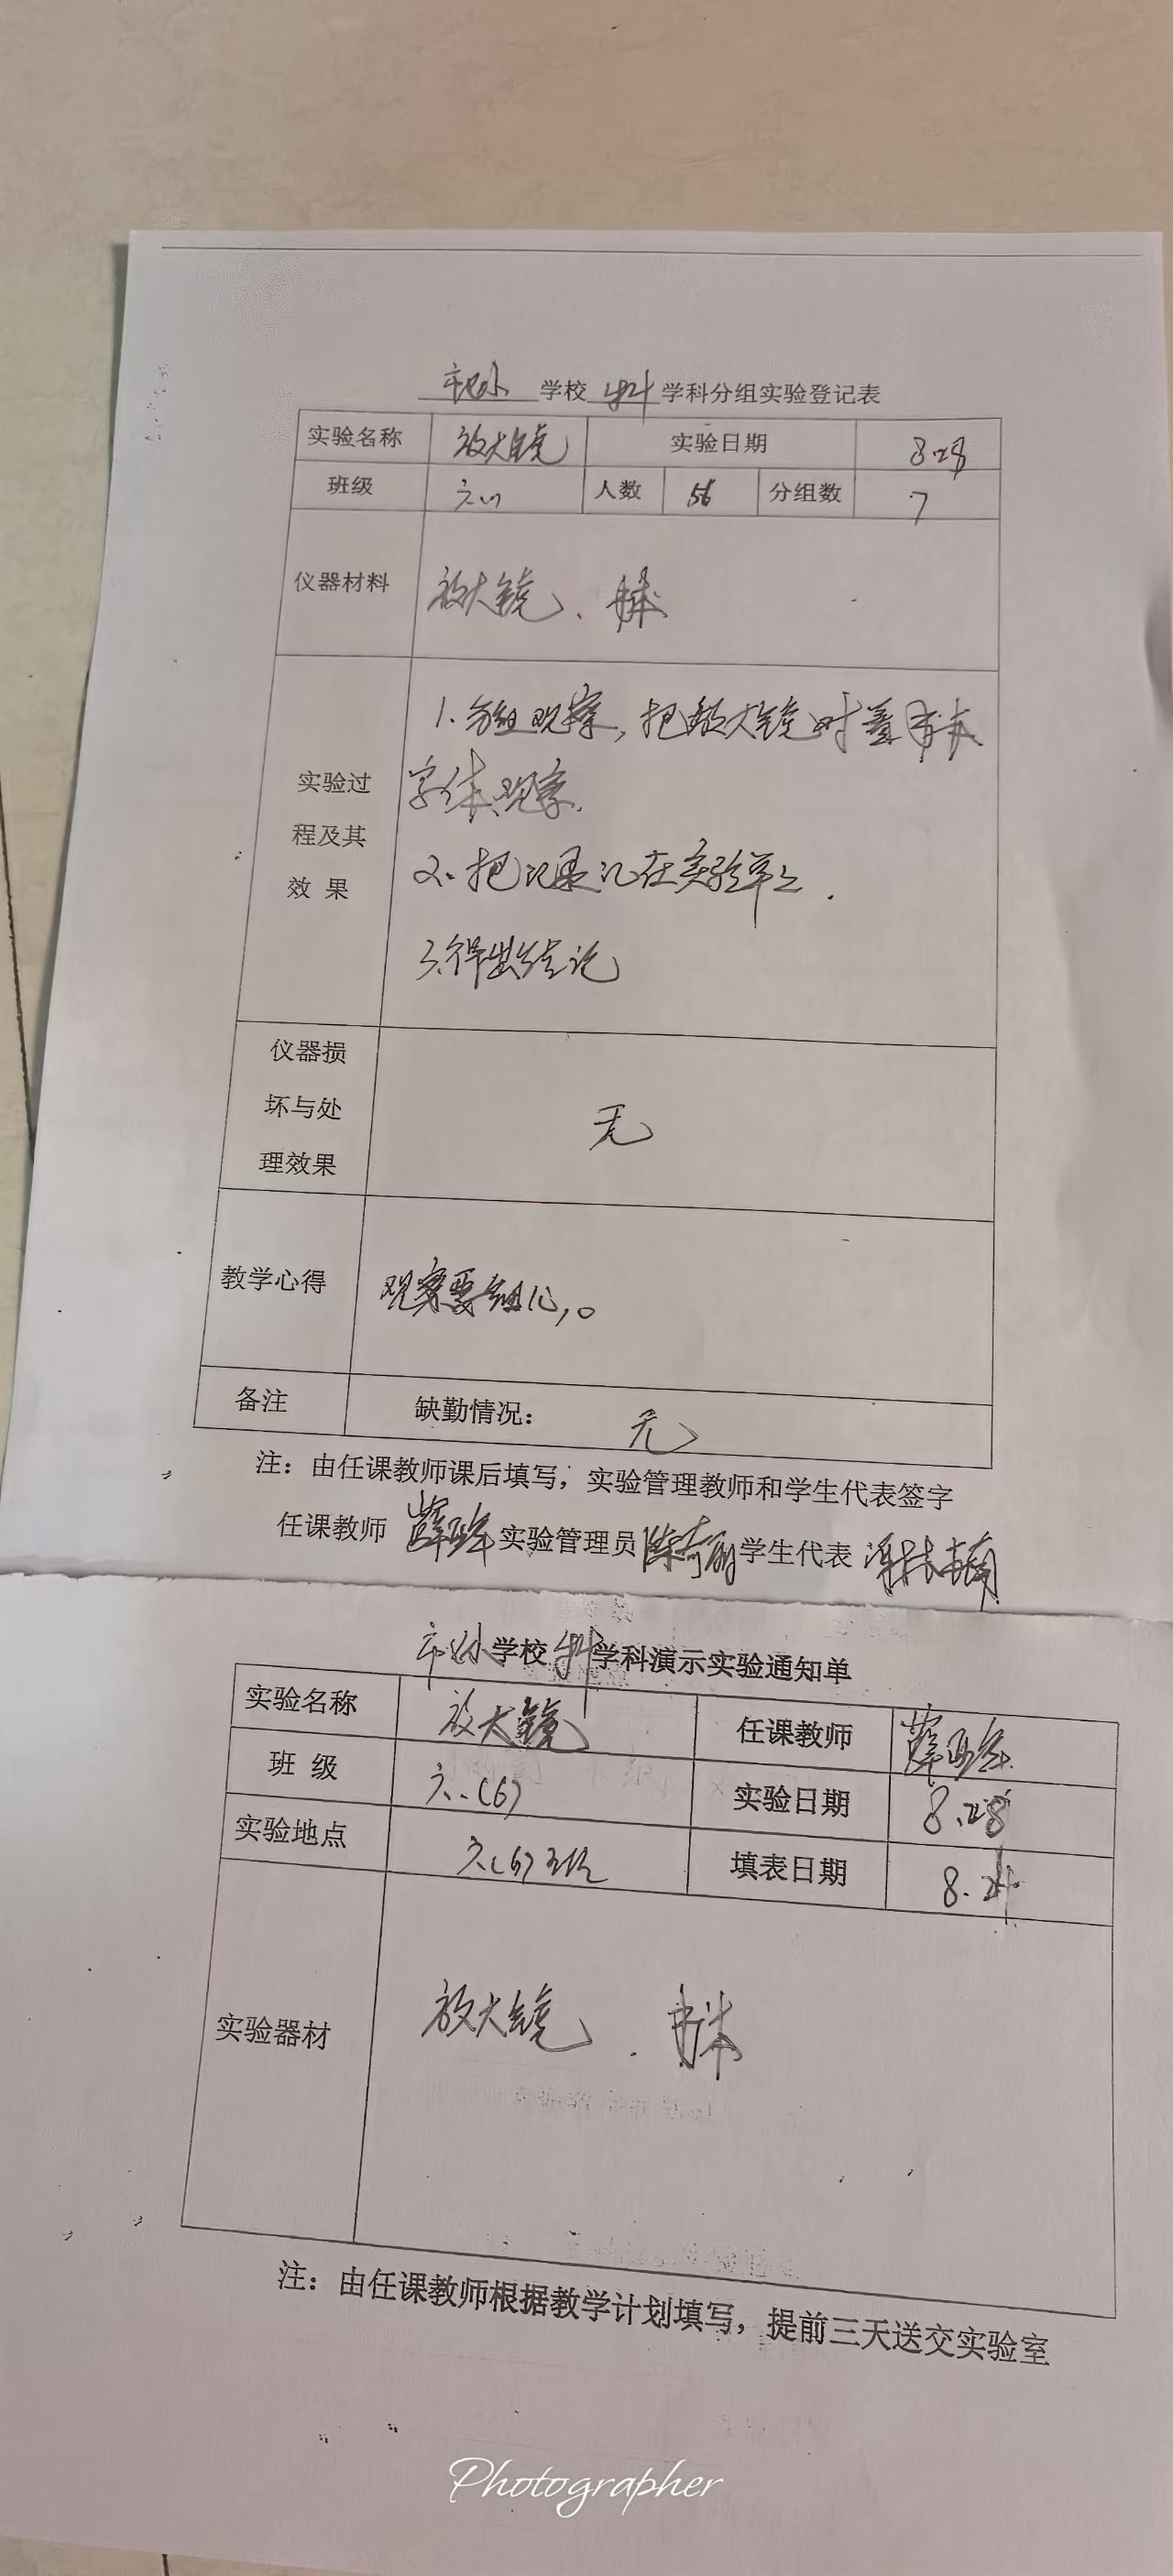 学校 学科分组实验登记表
实验名称 放大镜 实验日期 8.28
班级 人数 56 分组数 7
仪器材料 放大镜、书本
1.分组观察,把放大镜对着书本
字体观察.
实验过
程及其
效 果
2.把记录记在实验单上.
3.得出结论
仪器损
坏与处
理效果
无
教学心得 观察要细心,。
备注 缺勤情况: 无
注:由任课教师课后填写,实验管理教师和学生代表签字
任课教师 实验管理员 学生代表
学校 学科演示实验通知单
实验名称 放大镜 任课教师
班 级 六.(6) 实验日期 8.28
实验地点 六(6) 填表日期 8.24
实验器材 放大镜.书本
注:由任课教师根据教学计划填写,提前三天送交实验室
Photographer